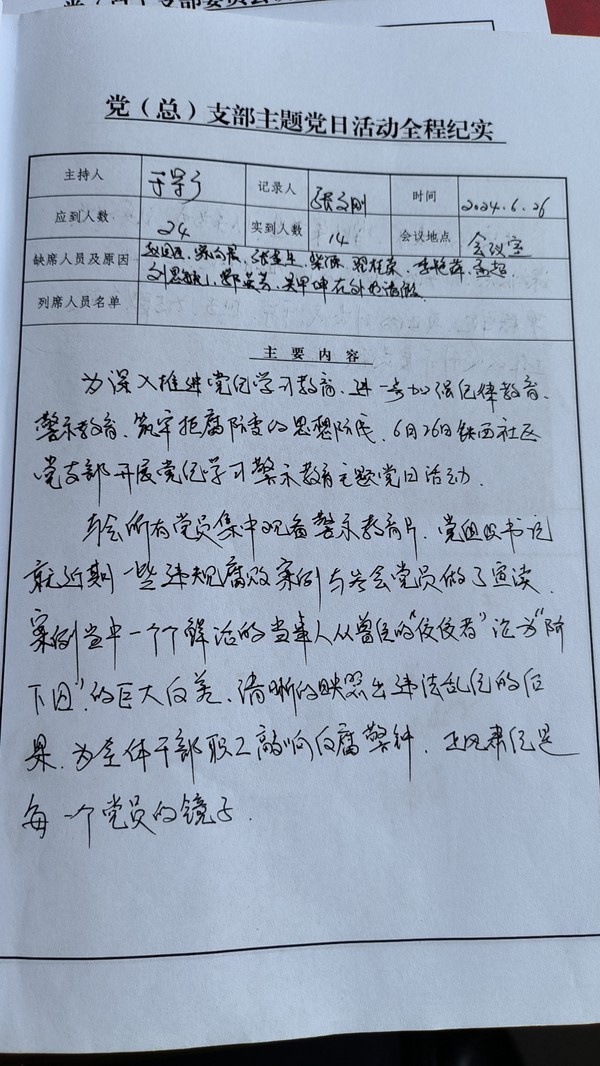 党（总）支部主题党日活动全程纪实
主持人 记录人 张文刚 时间 2024.6.26
应到人数 24 实到人数 14 会议地点 会议室
缺席人员及原因
在外地请假
列席人员名单
主要内容
为深入推进党纪学习教育、进一步加强纪律教育、
警示教育、筑牢拒腐防变的思想防线，6月26日铁西社区
党支部开展党纪学习警示教育主题党日活动．
与会所有党员集中观看警示教育片．党组织书记
就近期一些违规腐败案例与参会党员做了宣读．
案例当中一个个鲜活的当事人从曾经的“佼佼者”沦为“阶
下囚”的巨大反差、清晰的映照出违法乱纪的后
果．为全体干部职工敲响反腐警钟．正风肃纪是
每一个党员的镜子．